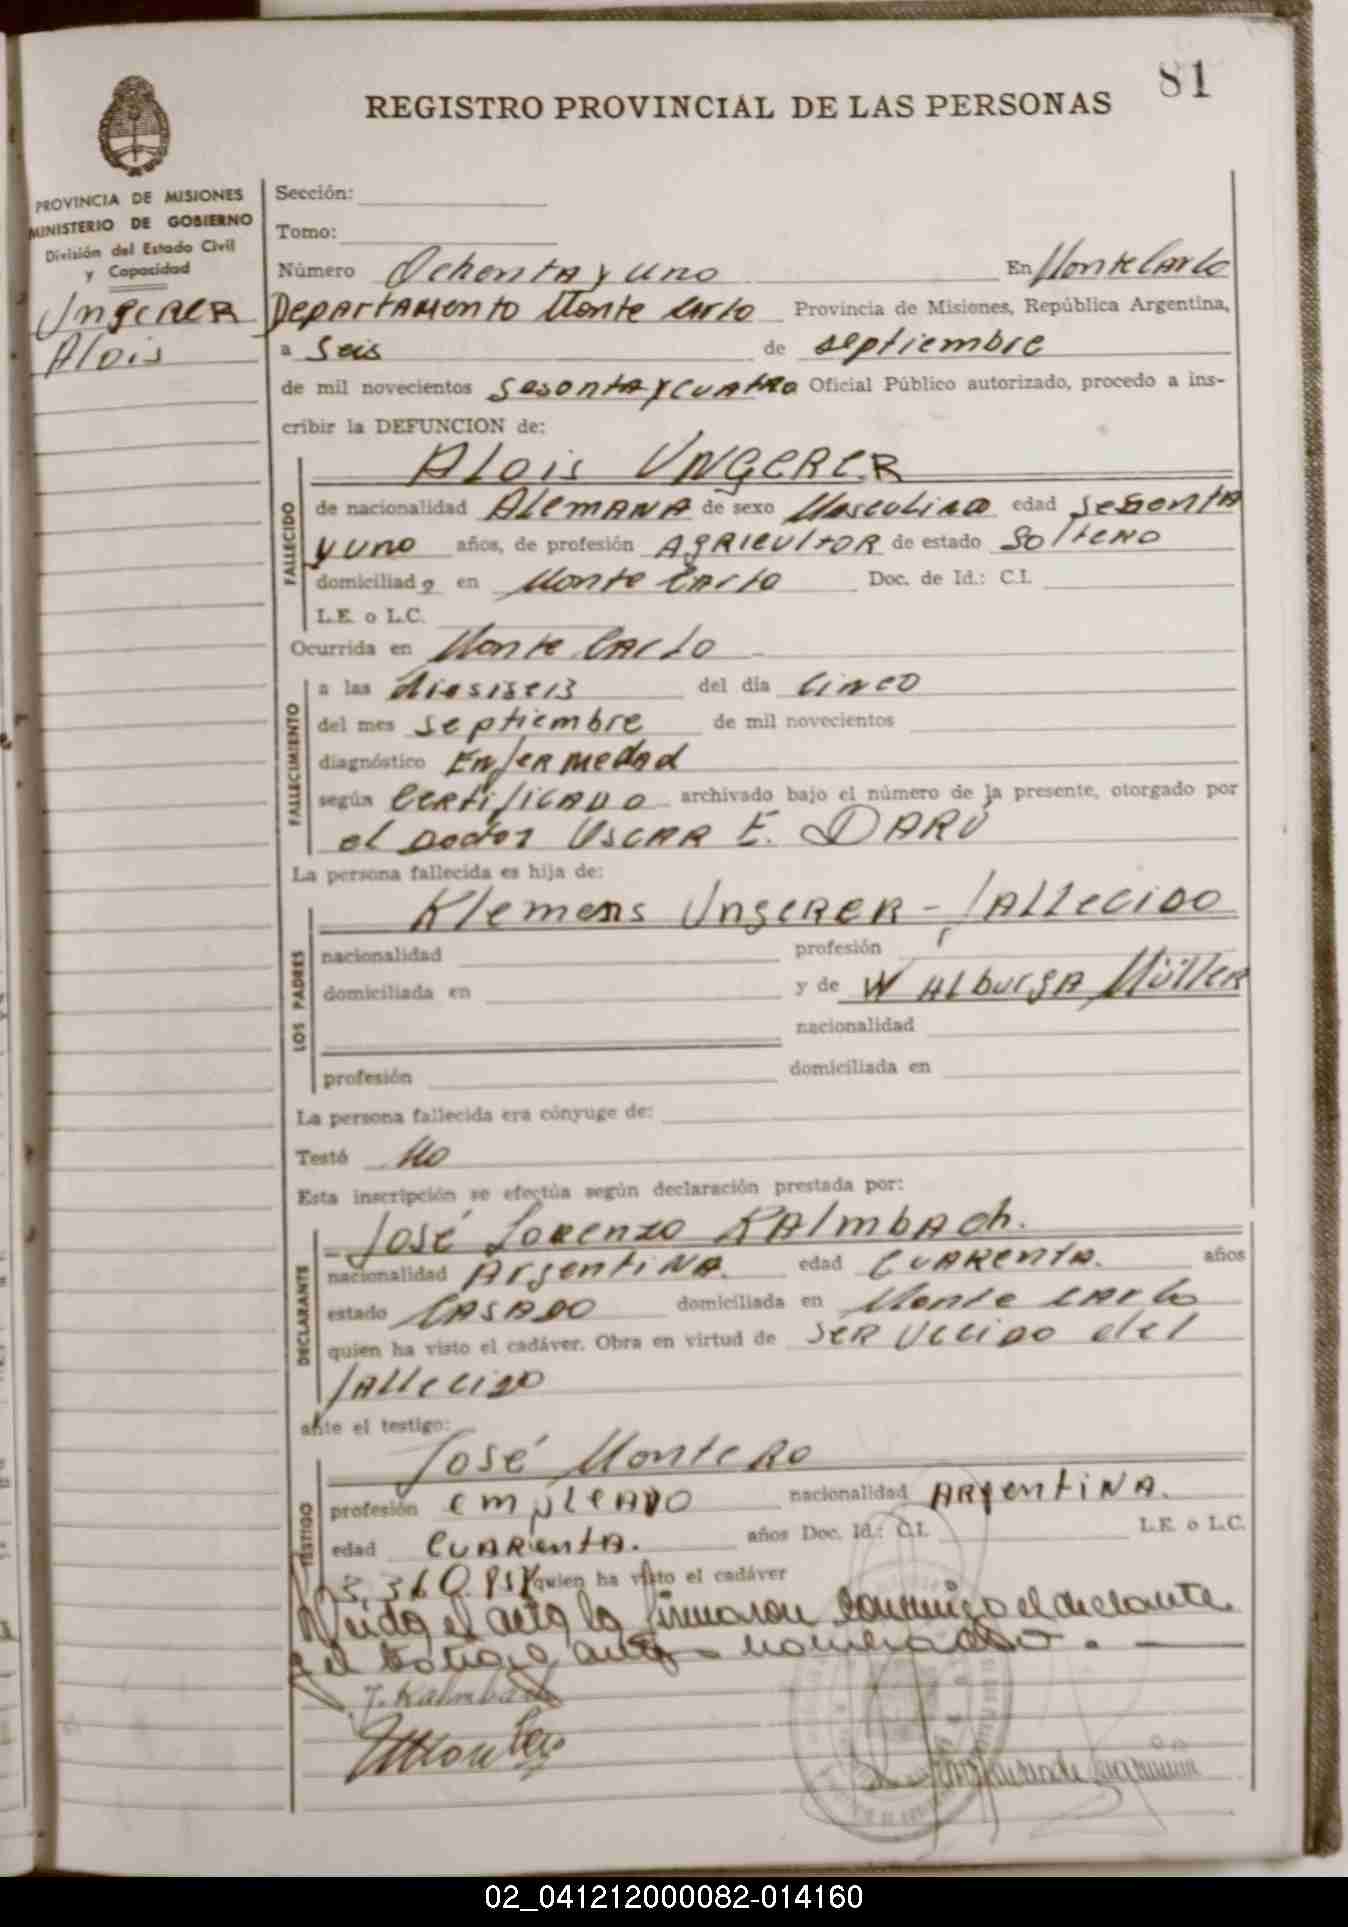 81
REGISTRO PROVINCIAL DE LAS PERSONAS
PROVINCIA DE MISIONES
MINISTERIO DE GOBIERNO
División del Estado Civil
y Capacidad
Ungerer
Alois
Sección:
Tomo:
Número Ochenta y uno En Monte Carlo
Departamento Monte Carlo Provincia de Misiones, República Argentina,
a Seis de septiembre
de mil novecientos Sesenta y cuatro Oficial Público autorizado, procedo a ins-
cribir la DEFUNCION de:
Alois UNGERER
FALLECIDO
de nacionalidad Alemana de sexo Masculino edad sesenta
y uno años, de profesión Agricultor de estado Soltero
domiciliado en Monte Carlo Doc. de Id.: C.I.
L.E. o L.C.
Ocurrida en Monte Carlo
FALLECIMIENTO
a las diesiseis del día cinco
del mes septiembre de mil novecientos
diagnóstico Enfermedad
según Certificado archivado bajo el número de la presente, otorgado por
el Doctor Oscar E. DARÚ
La persona fallecida es hija de:
LOS PADRES
Klemens Ungerer - fallecido
nacionalidad profesión
domiciliada en y de Walburga Müller
nacionalidad
profesión domiciliada en
La persona fallecida era cónyuge de:
Testó No
Esta inscripción se efectúa según declaración prestada por:
DECLARANTE
José Lorenzo Kalmbach.
nacionalidad Argentina. edad Cuarenta. años
estado Casado domiciliada en Monte Carlo
quien ha visto el cadáver. Obra en virtud de ser vecino del
fallecido
ante el testigo:
José Montero
TESTIGO
profesión empleado nacionalidad Argentina.
edad Cuarenta. años Doc. Id.: C.I. L.E. o L.C.
quien ha visto el cadáver
Leida el acta la firmaron conmigo el declarante
y el testigo antes nombrado. -
J. Kalmbach
Montero
02_041212000082-014160